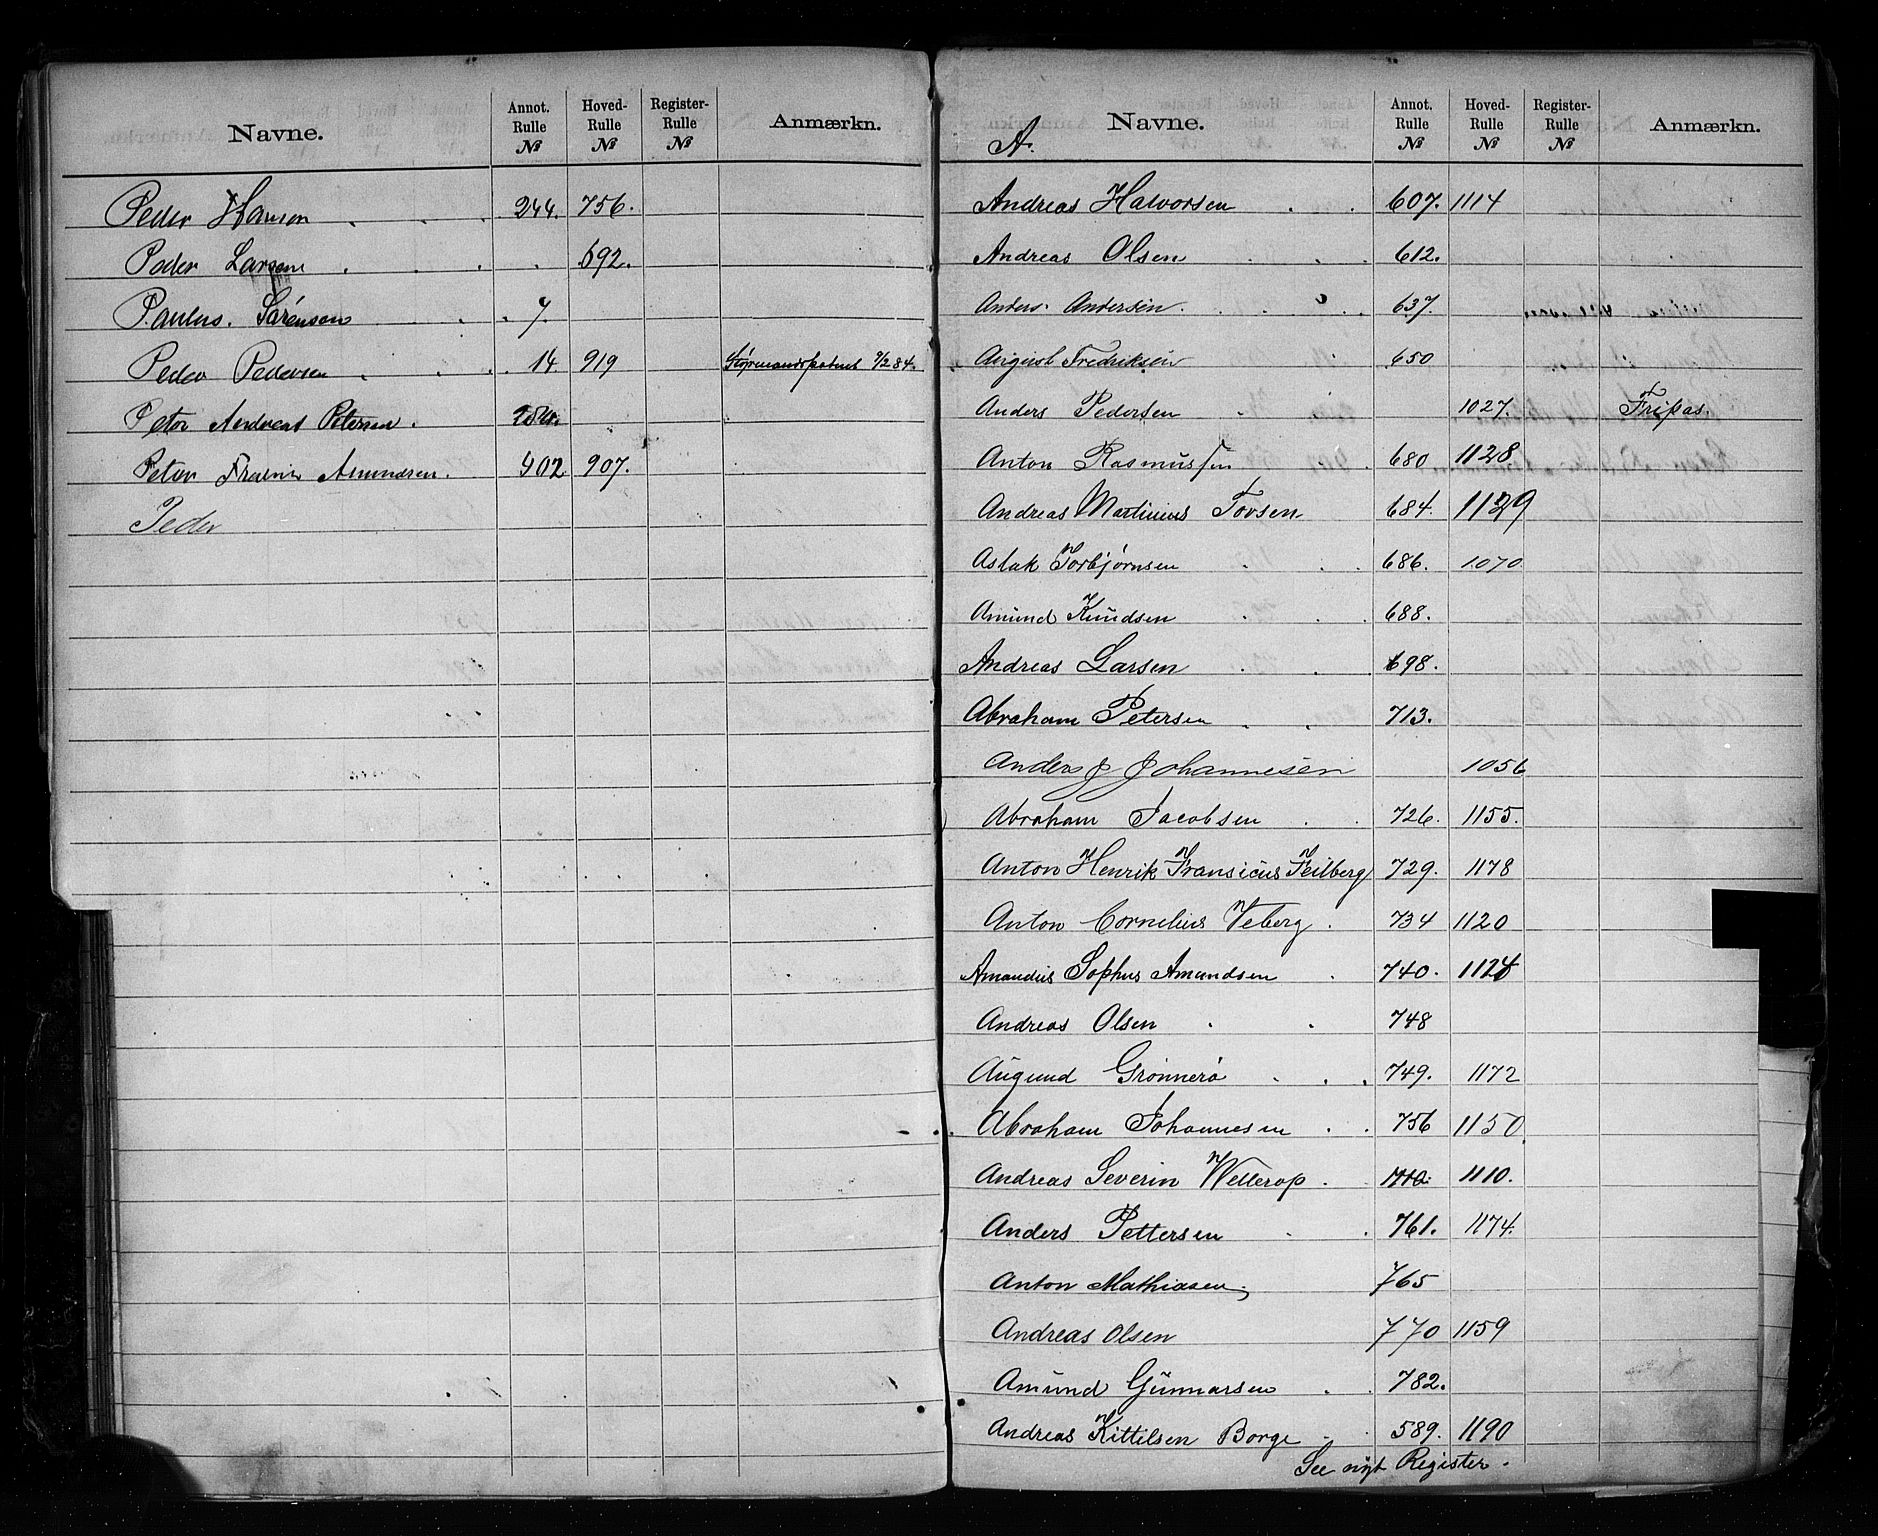 Navne. Annot. Rulle № Hoved-Rulle № Register-Rulle № Anmærkn.
Peder Hansen 244. 756.
Peder Larsen 692.
Paulus. Sørensen 7.
Peder Pedersen 14 919 Styrmandspatent 9/2 84.
Peter Andreas Petersen.
Peter Fredrik Amundsen. 902 907.
Peder
Navne. Annot. Rulle № Hoved-Rulle № Register-Rulle № Anmærkn.
A.
Andreas Halvorsen 607. 1114
Andreas Olsen 612.
Anders. Andersen. 637.
August Fredriksen 650
Anders Pedersen 1027. Fripas.
Anton Rasmussen 680 1128
Andreas Martinius Tovsen 684. 1129
Aslak Torbjørnsen 686. 1070
Amund Knudsen 688.
Andreas Larsen 698.
Abraham Petersen 713.
Anders J Johannesen 1056
Abraham Jacobsen 726. 1155.
Anton Henrik Fransicus Feilberg 729. 1178
Anton Cornelius Veberg. 734 1120
Amandus Sophus Amundsen 740. 1124
Andreas Olsen 748
Augund Grønnerø 749. 1172
Abraham Johannesen 756 1150
Andreas Severin Wetterop. 1110. 1110.
Anders Pettersen 761. 1174.
Anton Mathiasen 765
Andreas Olsen 770 1159
Amund Gunnarsen 782.
Andreas Kittilsen Borge 589. 1190
See nyt Register.